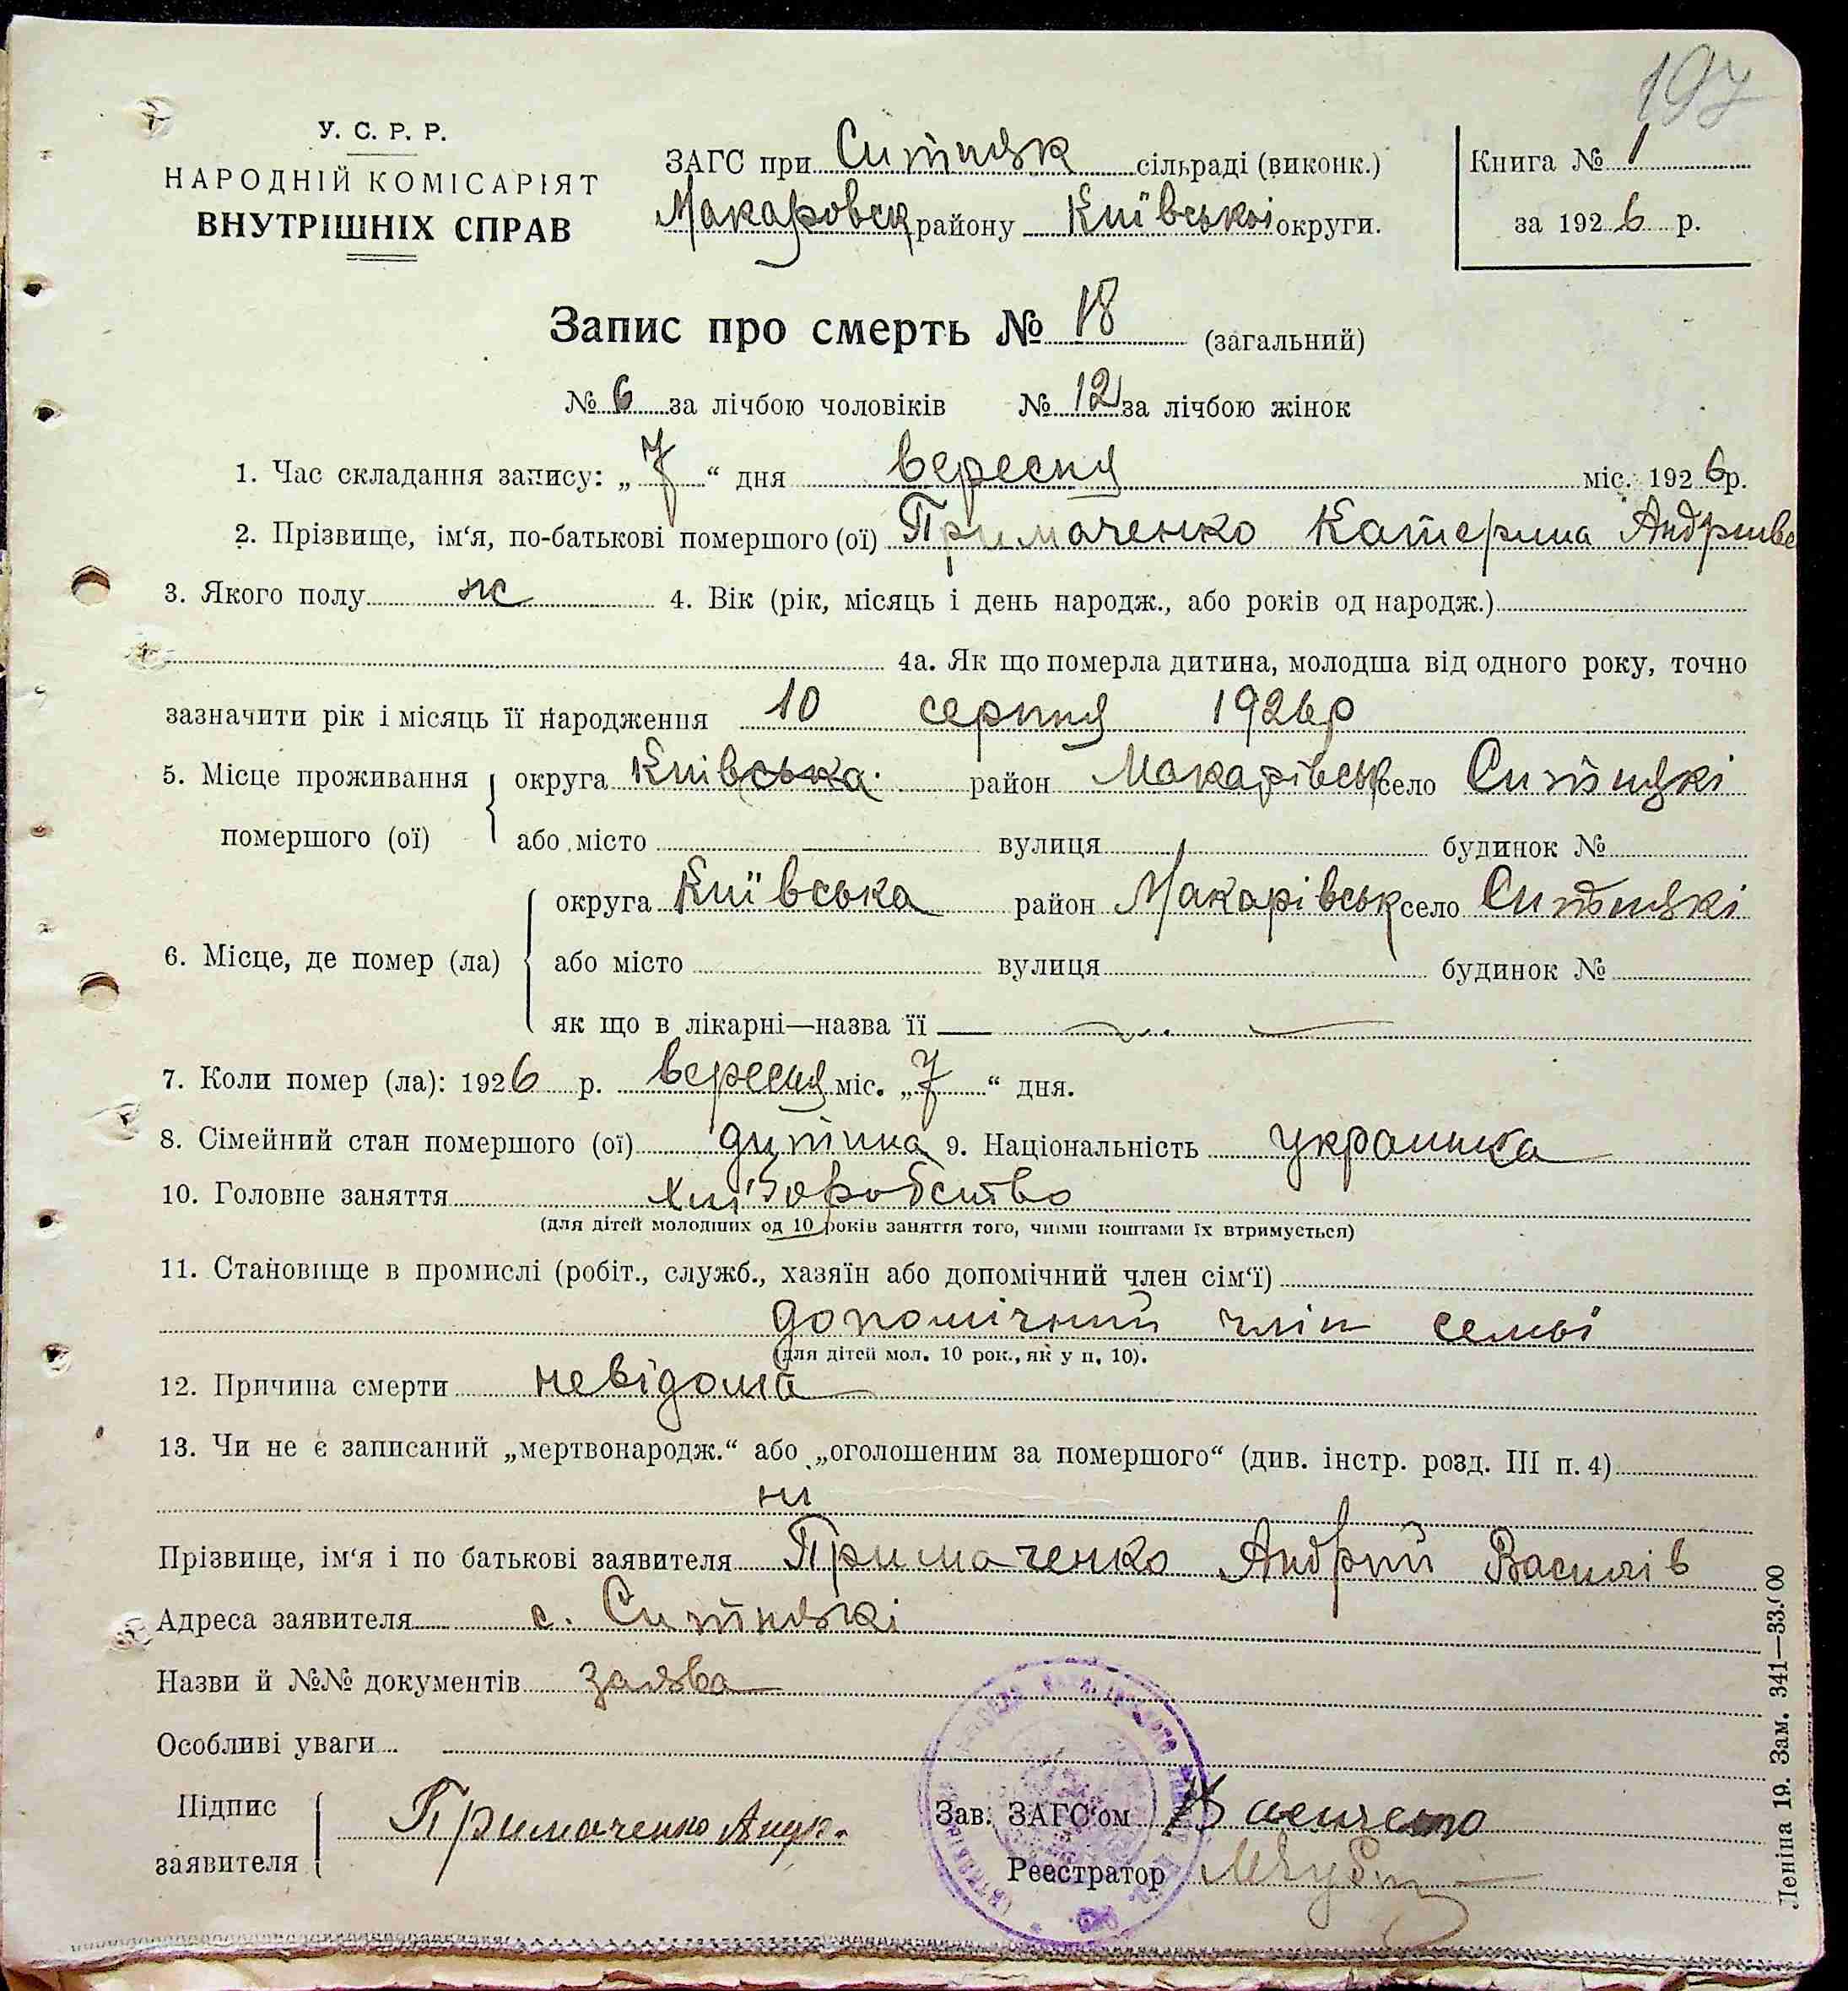 197
У. С. Р. Р.
НАРОДНІЙ КОМІСАРІЯТ
ВНУТРІШНІХ СПРАВ
ЗАГС при Ситняк сільраді (виконк.)
Макаровск району Київської округи.
Книга № 1
за 1926 р.
Запис про смерть № 18 (загальний)
№ 6 за лічбою чоловіків № 12 за лічбою жінок
1. Час складання запису: „7“ дня вересня міс. 1926р.
2. Прізвище, ім‘я, по-батькові помершого (ої) Примаченко Катерина Андриівс
3. Якого полу ж 4. Вік (рік, місяць і день народж., або років од народж.)
4а. Як що померла дитина, молодша від одного року, точно
зазначити рік і місяць її народження 10 серпня 1926р
5. Місце проживання помершого (ої) округа Київська район Макарівськ село Ситняки
або місто вулиця будинок №
6. Місце, де помер (ла) округа Київська район Макарівськ село Ситняки
або місто вулиця будинок №
як що в лікарні—назва її —
7. Коли помер (ла): 1926 р. вересня міс. „7“ дня.
8. Сімейний стан помершого (ої) дитина 9. Національність украинка
10. Головне заняття хліборобство
(для дітей молодших од 10 років заняття того, чиїми коштами їх втримується)
11. Становище в промислі (робіт., служб., хазяїн або допомічний член сім‘ї)
допомічний член семьї
(для дітей мол. 10 рок., як у п. 10).
12. Причина смерти невідома
13. Чи не є записаний „мертвонародж.“ або „оголошеним за помершого“ (див. інстр. розд. III п. 4)
ни
Прізвище, ім‘я і по батькові заявителя Примаченко Андрий Василів
Адреса заявителя с. Ситнякі
Назви й №№ документів заява
Особливі уваги
Підпис заявителя Примаченко Андр.
Зав. ЗАГС‘ом
Реєстратор
Леніна 19. Зам. 341—33.000